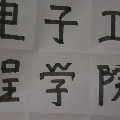 电子工
程学院